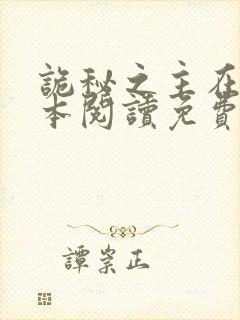 詭秘之主在
本閱讀免費
譚崇正